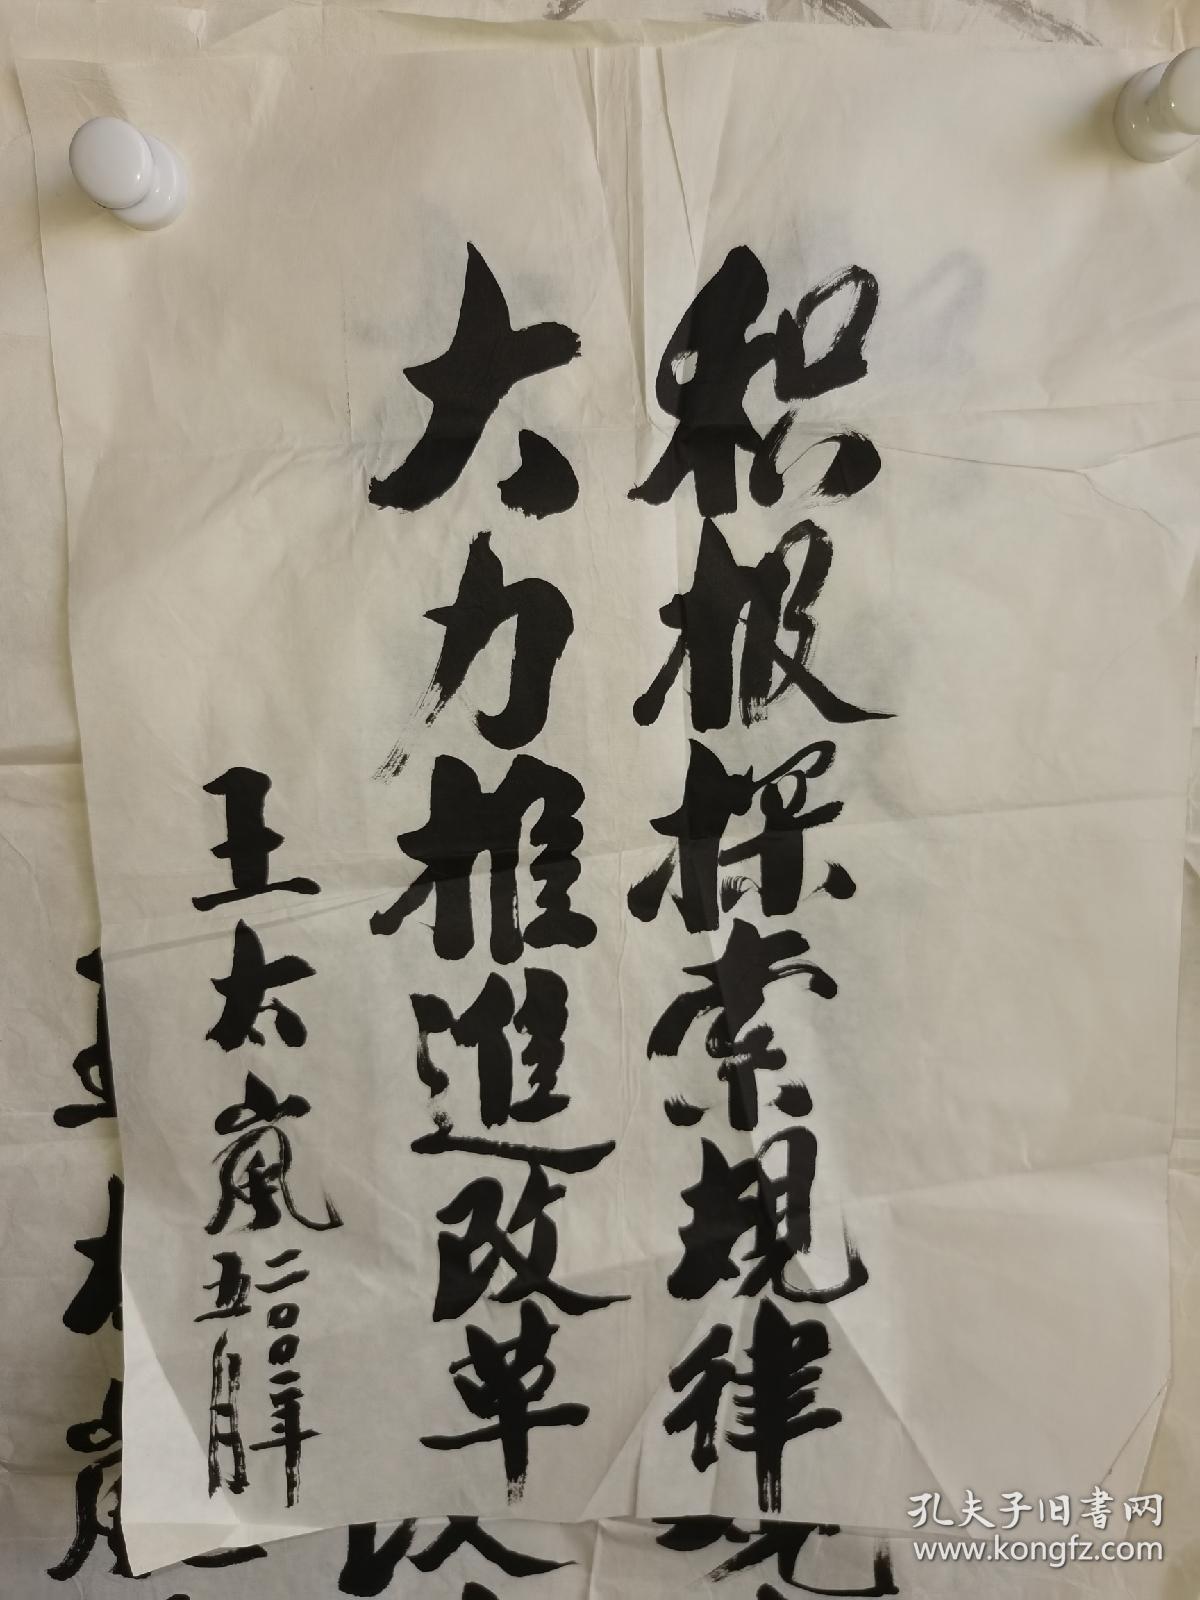 积极探索规律
大力推進改革
王太嵐
二〇〇二年
五月
孔夫子旧書网
www.kongfz.com